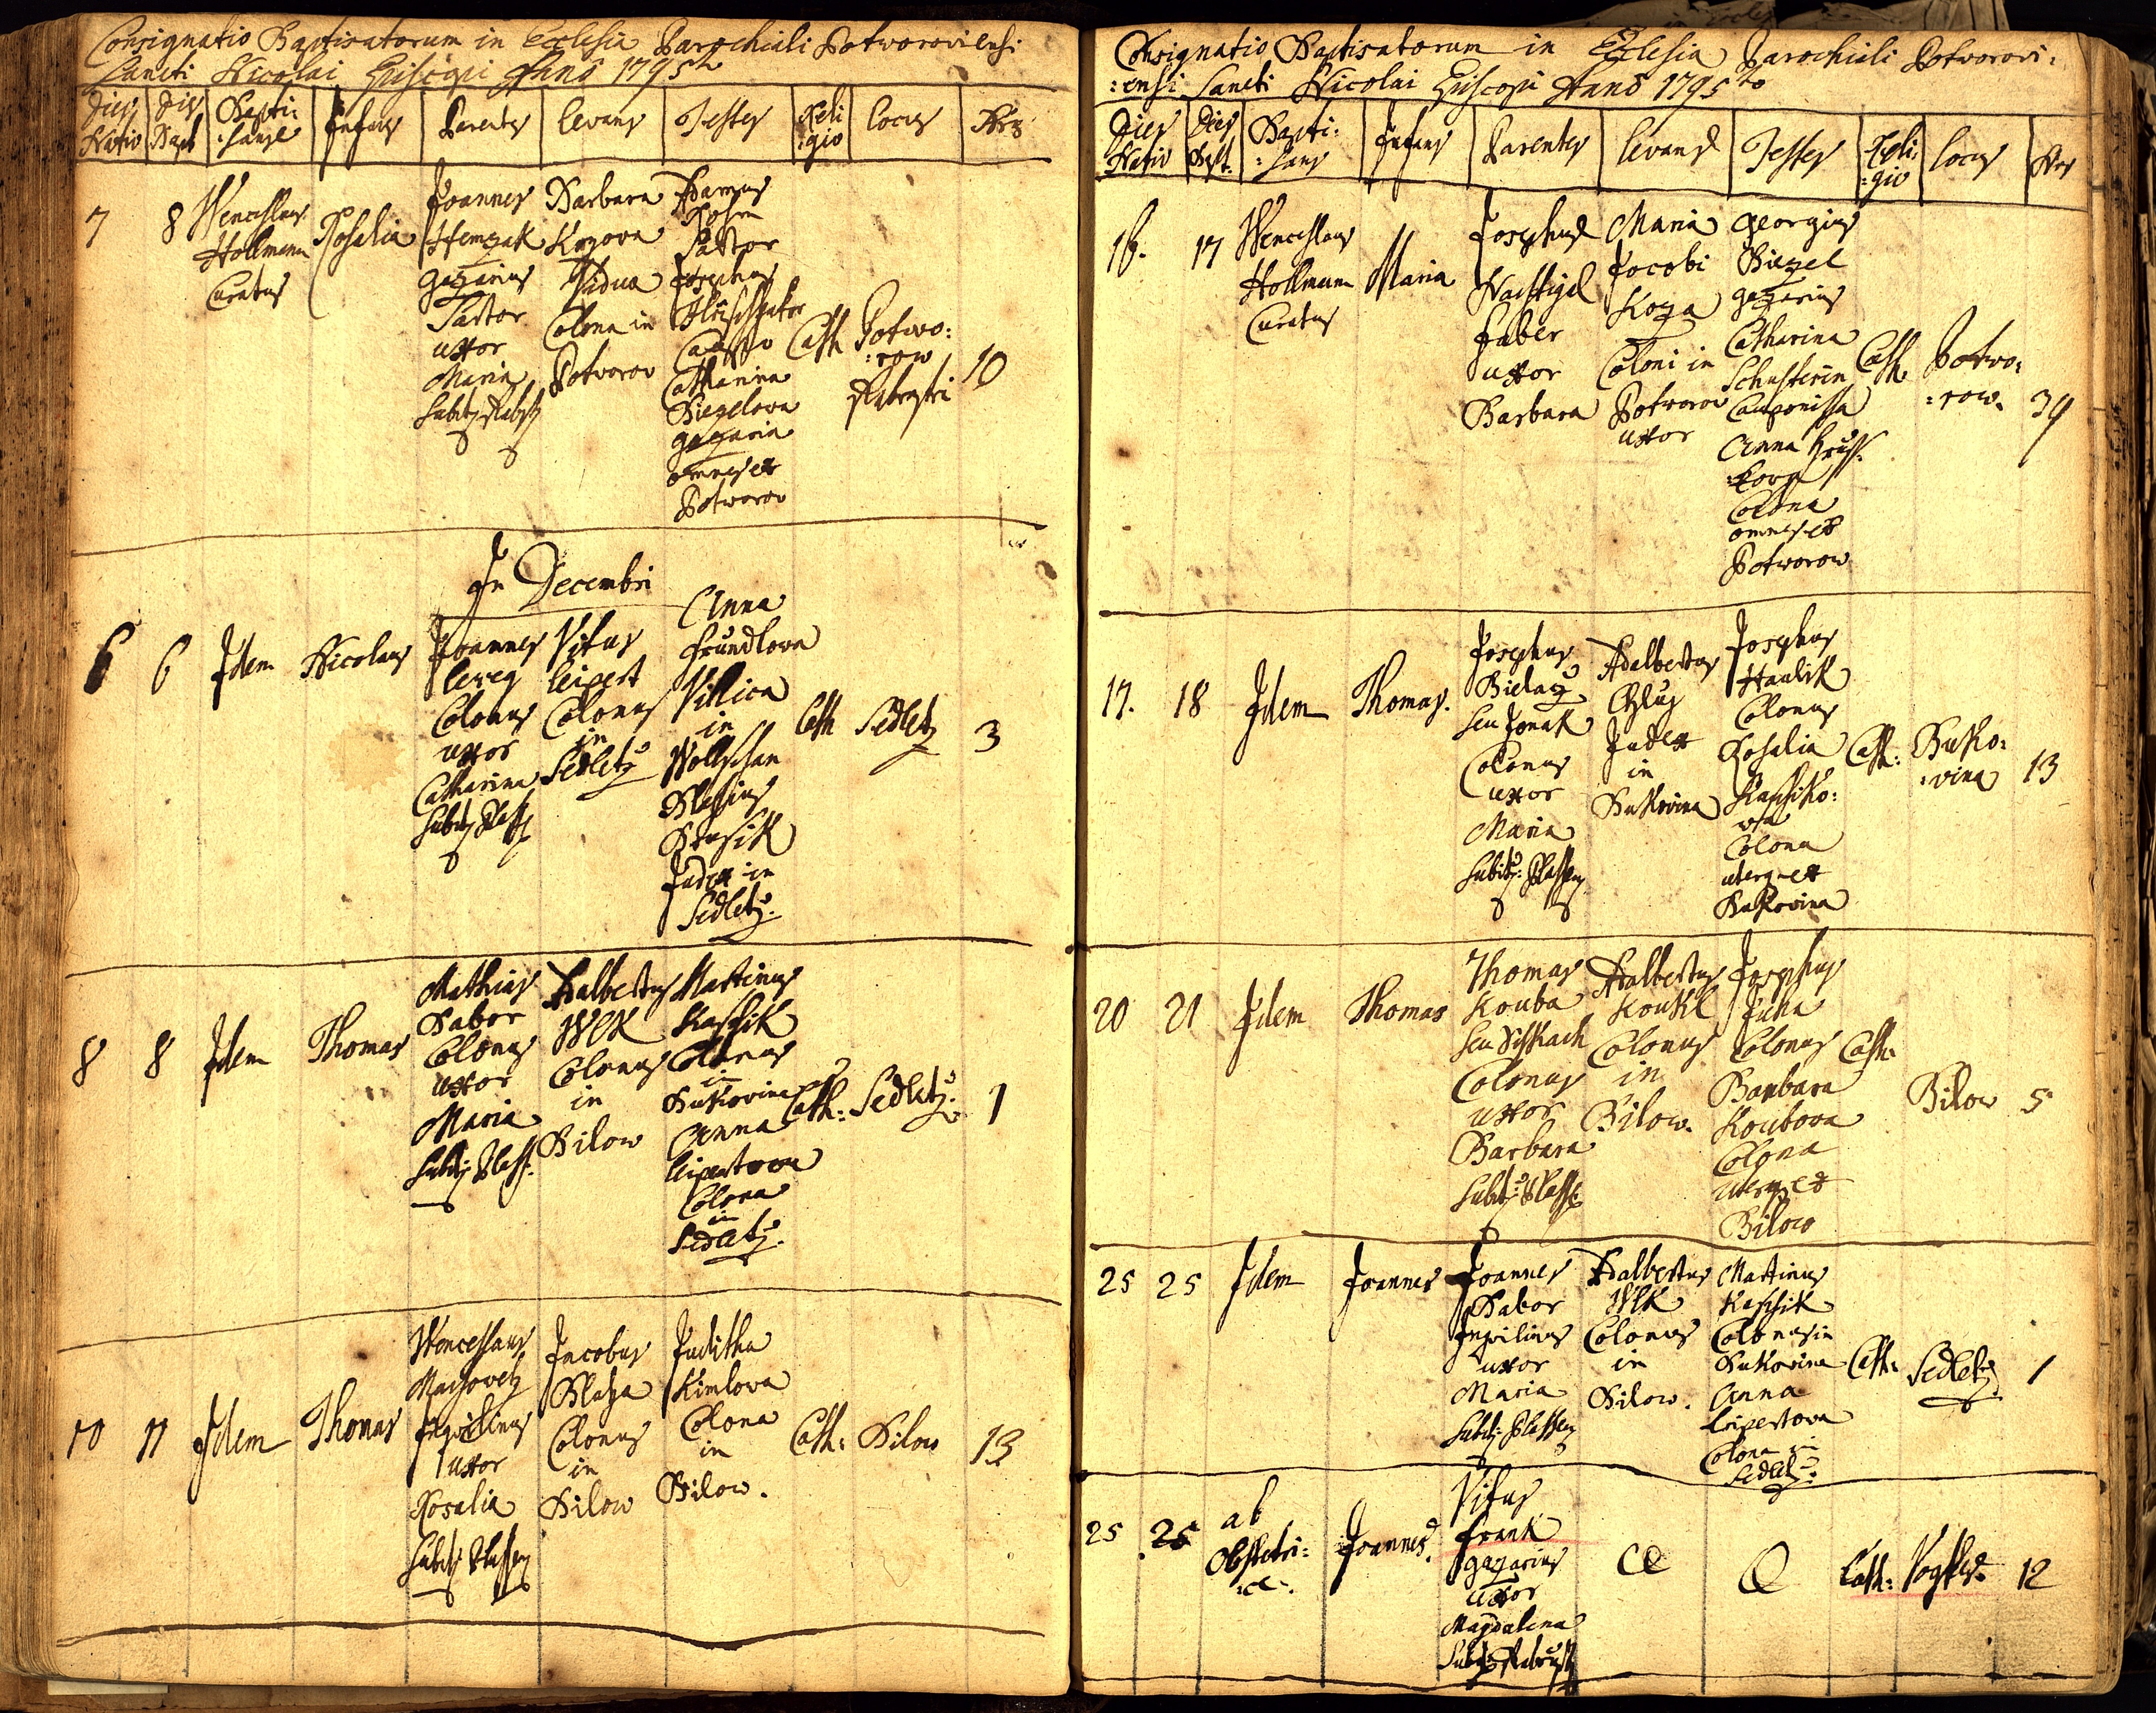 Consignatio Baptisatorum in Ecclesia Parochiali Potworoviensi
Sancti Nicolai Episcopi Anno 1795to
Dies Nativ
Dies Bapt
Bapti:
:sans
Infans
Parentes
Levans
Testes
Reli
:gio
Locus
Nrs
7
8
Wenceslaus
Hollmann
Curatus
Rosalia
Joannes
Hemzak
gazarius
Sartor
uxor
Maria
Barbara
Kozova
Vidua
Colona in
Potvorov
Adamus
Sartor
Josephus
Catharina
Biegelova
gazaria
omnes ex
Potworov
Cath
Potwo:
:row
10
In Decembri
6
6
Idem
Nicolaus
Joannes
Colonus
uxor
Catharina
Vitus
Leipert
Colonus
in
Sedletz
Anna
Frundlova
Villica
in
Wollschan
Blasius
Judex in
Sedletz.
Cath
Sedletz
3
8
8
Idem
Thomas
Mathias
Babor
Colonus
uxor
Maria
Adalbertus
Wlk
Colonus
in
Bilow
Martinus
Kaschik
Colonus
in
Bukovina
Anna
Leipertova
Colona
in
Sedletz.
Cath:
Sedletz.
1
10
11
Idem
Thomas
Wenceslaus
Inquilinus
uxor
Rosalia
Jacobus
Blaha
Colonus
in
Bilow
Juditha
Kimlova
Colona
in
Bilow.
Cath:
Bilow
13
Consignatio Baptisatorum in Ecclesia Parochiali Potvorovi:
:ensi Sancti Nicolai Episcopi Anno 1795to
Dies
Nativ
Dies
Bapt.
Bapti:
:sans
Infans
Parentes
Levans
Testes
Reli:
:gio
Locus
Nrs
16.
17
Wenceslaus
Hollmann
Curatus
Maria
Josephus
Nachtigel
Faber
uxor
Barbara
Maria
Jacobi
Koza
Coloni in
Potvorov
uxor
Georgius
Biegel
gazarius
Catharina
Schusterin
Anna
Colona
omnes ex
Potworow
Cath
Potwo:
:row.
39
17.
18
Idem
Thomas.
Josephus
Colonus
uxor
Maria
Adalbertus
Judex
in
Bukovina
Josephus
Haulik
Colonus
Rosalia
Kaschiko:
:va
Colona
uterque ex
Bukovina
Cath:
Buko:
:vina
13
20
21
Idem
Thomas
Thomas
Kouba
Colonus
uxor
Barbara
Adalbertus
Koukl
Colonus
in
Bilow.
Josephus
Juha
Colonus
Barbara
Koubova
Colona
uterque ex
Bilow
Cath:
Bilow
5
25
25
Idem
Joannes
Joannes
Babor
Inquilinus
uxor
Maria
Adalbertus
Wlk
Colonus
in
Bilow.
Martinus
Kaschik
Colonus in
Bukovina
Anna
Leipertova
Colona in
Sedletz.
Cath:
Sedletz.
1
25
25
ab
Obstetri:
:ce.
Joannes.
Vitus
Frank
gazarius
uxor
Magdalena
Cath:
12